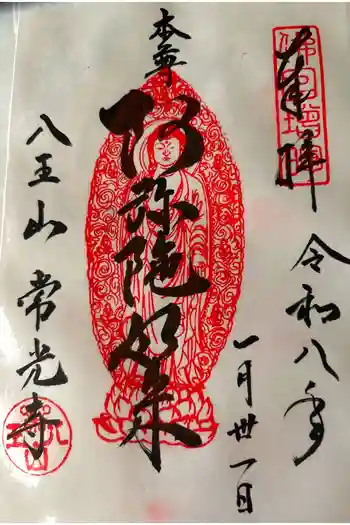 奉拝
令和八年
一月卅一日
本尊
阿弥陀如来
八王山 常光寺